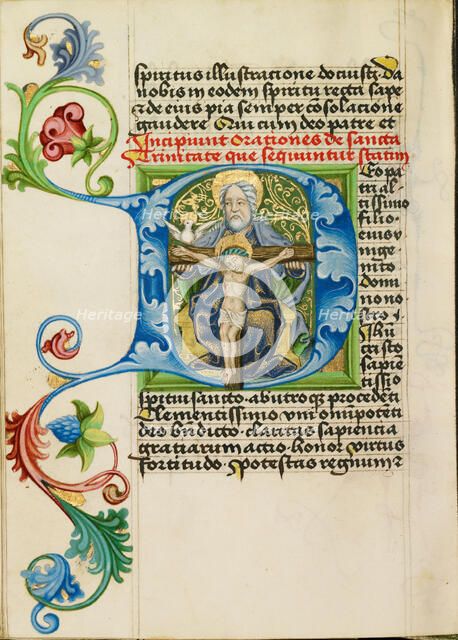 spiritus illustracione docuistj Da
nobis in eodem spiritu recti sape
et de eius pia semper cosolacione
gaudere Qui cum deo patre et
Incipiunt orationes de sancta
trinitate que sequuntur statim
Eo pa
tri al-
tissimo
filio
eius v
nige
nito
Domi
no no
stro
cristo
sapie
tissio
spiritui sancto ab utroque procedeti
Clementissimo vni omnipoteti
deo bndicto claritas sapientia
gratiarum actio honor virtus
fortitudo potestas regnum
Heritage
Images